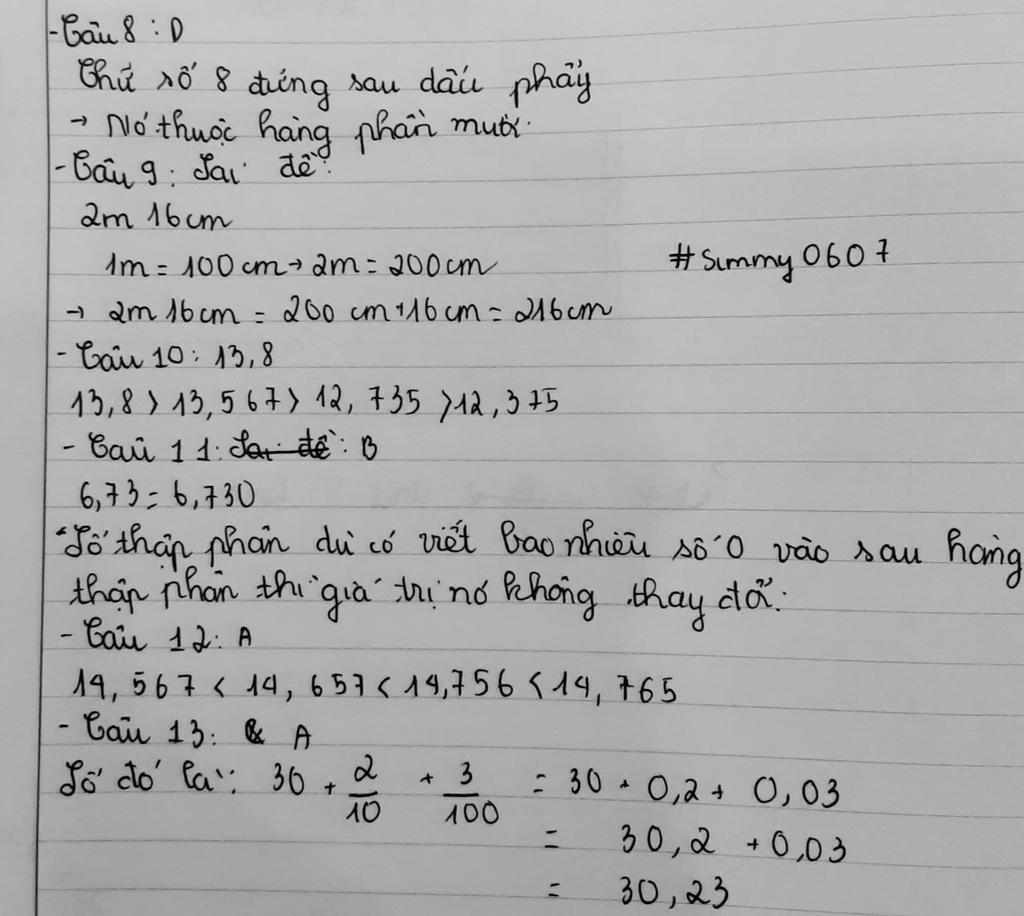 - Câu 8 : D
Chữ số 8 đứng sau dấu phẩy
→ Nó thuộc hàng phần mười.
- Câu 9 : Sai đề.
2m 16cm
1m = 100 cm → 2m = 200cm
#Summy0607
→ 2m 16cm = 200 cm + 16cm = 216cm
- Câu 10 : 13,8
13,8 > 13,567 > 12,735 > 12,375
- Câu 11: Sai đề : B
6,73 = 6,730
"Số thập phân dù có viết bao nhiêu số 0 vào sau hàng
thập phân thì giá trị nó không thay đổi.
- Câu 12: A
14,567 < 14,657 < 14,756 < 14,765
- Câu 13: A
Số đó là: 30 + 2/10 + 3/100 = 30 + 0,2 + 0,03
= 30,2 + 0,03
= 30,23